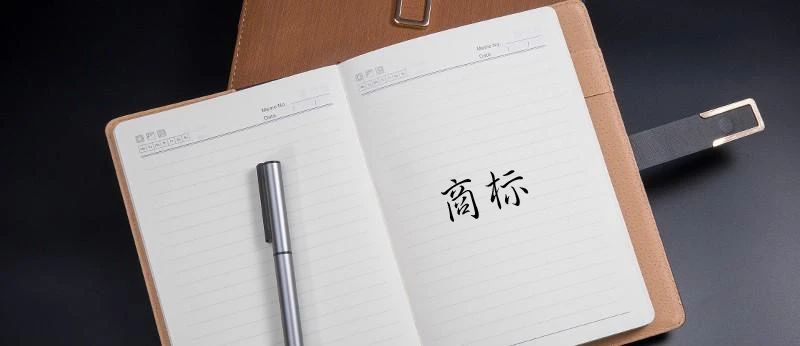 Memo No.
Date
Memo No.
Date
商标